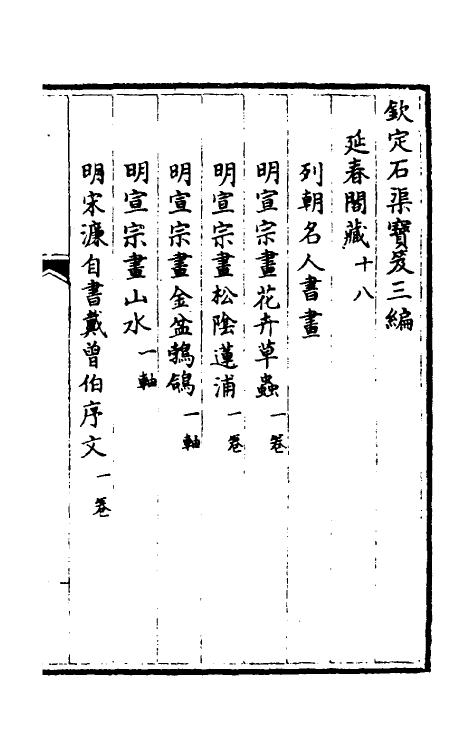 欽定石渠寶笈三編
延春閣藏十八
列朝名人書畫
明宣宗畫花卉草蟲一卷
明宣宗畫松陰蓮浦一卷
明宣宗畫金盆鵓鴿一軸
明宣宗畫山水一軸
明宋濂自書戴曾伯序文一卷